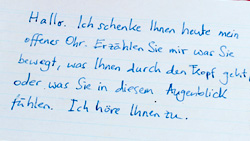 Hallo. Ich schenke Ihnen heute mein
offenes Ohr. Erzählen Sie mir was Sie
bewegt, was Ihnen durch den Kopf geht,
oder was Sie in diesem Augenblick
fühlen. Ich höre Ihnen zu.